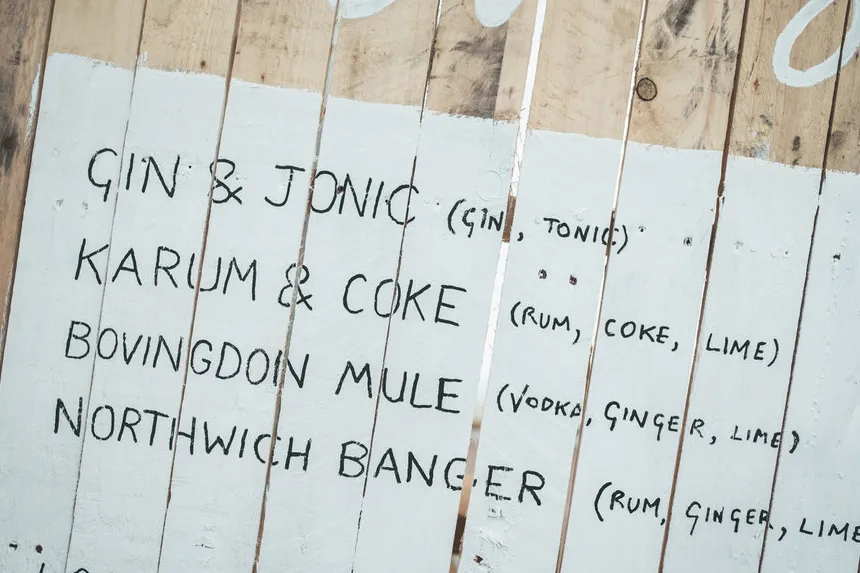 GIN & JONIC (GIN, TONIC)
KARUM & COKE (RUM, COKE, LIME)
BOVINGDON MULE (VODKA, GINGER, LIME)
NORTHWICH BANGER (RUM, GINGER, LIME